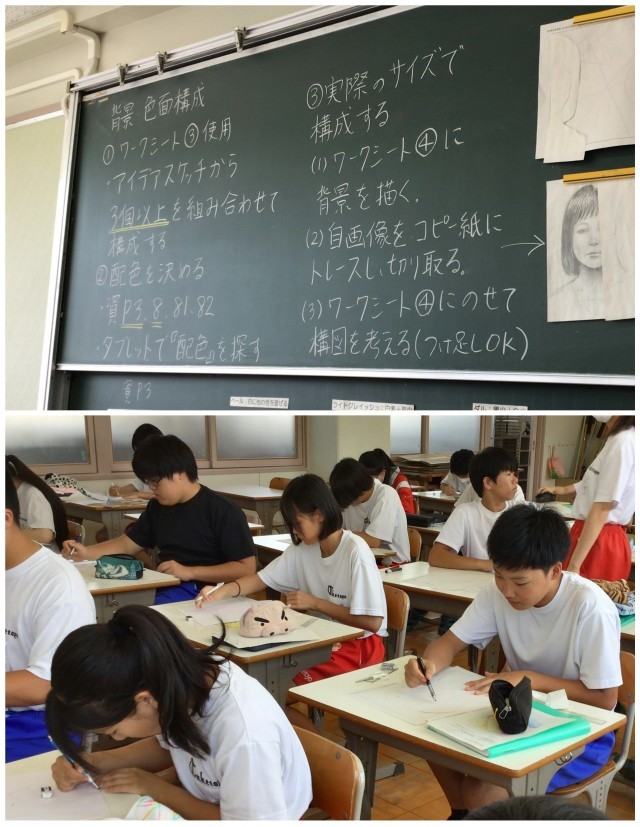 背景 色面構成
① ワークシート③使用
・アイデアスケッチから
3個以上を組み合わせて
構成する
②配色を決める
・資P3.8.81.82
・タブレットで『配色』を探す
③実際のサイズで
構成する
(1) ワークシート④に
背景を描く.
(2) 自画像をコピー紙に
トレースし、切り取る。
(3) ワークシート④にのせて
構図を考える(つけ足しOK)
資P3